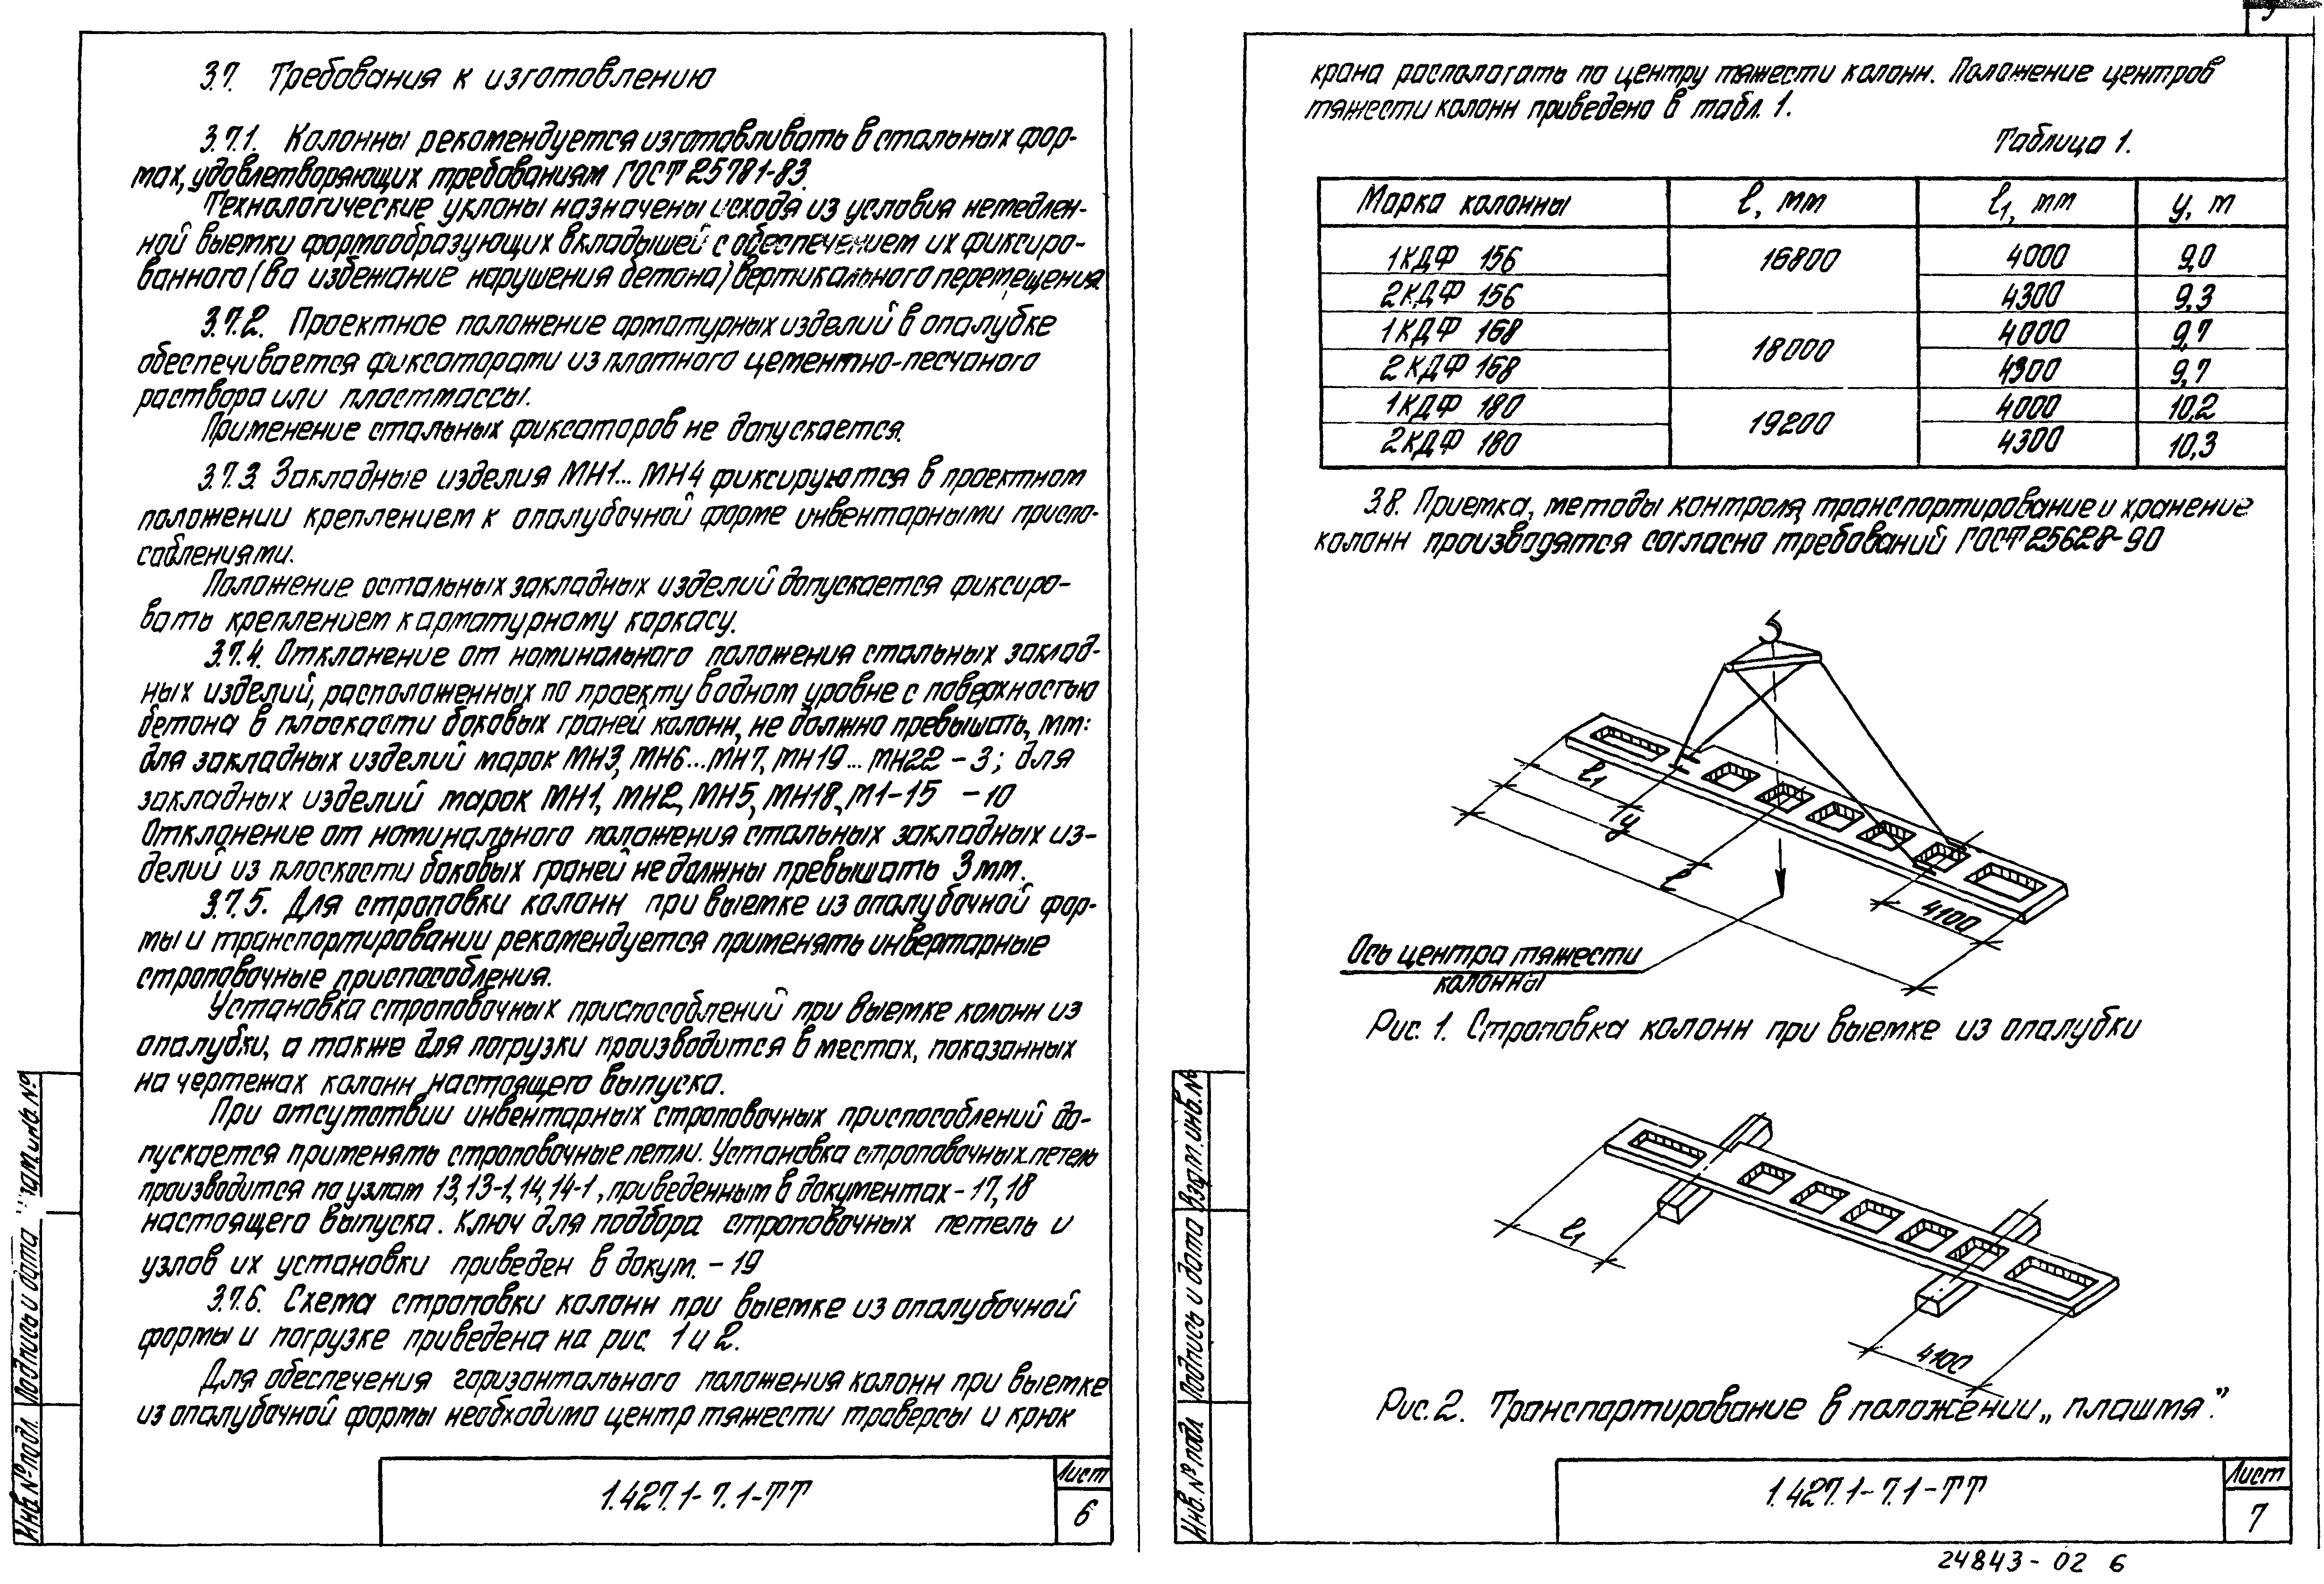 3.7. Требования к изготовлению
3.7.1. Колонны рекомендуется изготавливать в стальных фор-
мах, удовлетворяющих требованиям ГОСТ 25781-83.
Технологические уклоны назначены исходя из условия немедлен-
ной выемки формообразующих вкладышей с обеспечением их фиксиро-
ванного (во избежание нарушения бетона) вертикального перемещения.
3.7.2. Проектное положение арматурных изделий в опалубке
обеспечивается фиксаторами из плотного цементно-песчаного
раствора или пластмассы.
Применение стальных фиксаторов не допускается.
3.7.3. Закладные изделия МН1... МН4 фиксируются в проектном
положении креплением к опалубочной форме инвентарными приспо-
соблениями.
Положение остальных закладных изделий допускается фиксиро-
вать креплением к арматурному каркасу.
3.7.4. Отклонение от номинального положения стальных заклад-
ных изделий, расположенных по проекту в одном уровне с поверхностью
бетона в плоскости боковых граней колонн, не должно превышать, мм:
для закладных изделий марок МН3, МН6...МН7, МН19... МН22 - 3; для
закладных изделий марок МН1, МН2, МН5, МН18, М1-15 - 10
Отклонение от номинального положения стальных закладных из-
делий из плоскости боковых граней не должны превышать 3 мм.
3.7.5. Для строповки колонн при выемке из опалубочной фор-
мы и транспортировании рекомендуется применять инвертарные
строповочные приспособления.
Установка строповочных приспособлений при выемке колонн из
опалубки, а также для погрузки производится в местах, показанных
на чертежах колонн настоящего выпуска.
При отсутствии инвентарных строповочных приспособлений до-
пускается применять строповочные петли. Установка строповочных петель
производится по узлам 13, 13-1, 14, 14-1, приведенным в документах - 17, 18
настоящего выпуска. Ключ для подбора строповочных петель и
узлов их установки приведен в докум. - 19
3.7.6. Схема строповки колонн при выемке из опалубочной
формы и погрузке приведена на рис. 1 и 2.
Для обеспечения горизонтального положения колонн при выемке
из опалубочной формы необходимо центр тяжести траверсы и крюк
1.427.1-7.1-ТТ
Лист
6
Инв. № подл. Подпись и дата взам.инв.№
крана располагать по центру тяжести колонн. Положение центров
тяжести колонн приведено в табл. 1.
Таблица 1.
Марка колонны ℓ, мм ℓ1, мм у, м
1КДФ 156 16800 4000 9,0
2КДФ 156 4300 9,3
1КДФ 168 18000 4000 9,7
2КДФ 168 4300 9,7
1КДФ 180 19200 4000 10,2
2КДФ 180 4300 10,3
3.8. Приемка, методы контроля, транспортирование и хранение
колонн производятся согласно требований ГОСТ 25628-90
ℓ1
у
ℓ
4100
Ось центра тяжести
колонны
Рис. 1. Строповка колонн при выемке из опалубки
ℓ1
4100
Рис. 2. Транспортирование в положении „плашмя".
1.427.1-7.1-ТТ
Лист
7
Инв. № подл. Подпись и дата Взам.инв.№
24843-02 6